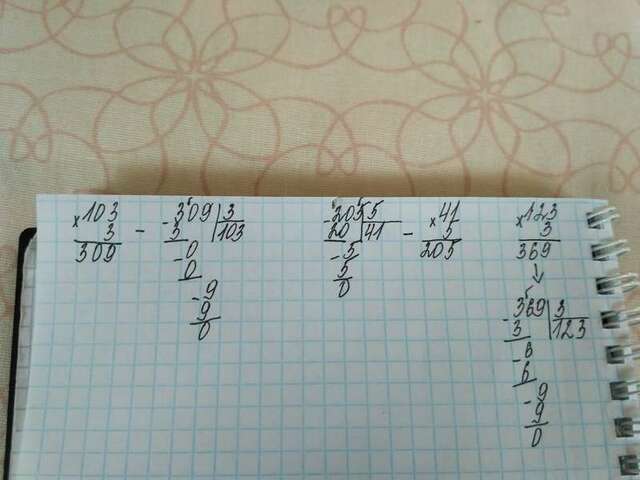 ×103 - -309|3 -205|5 - ×41 ×123
3 3 |103 20 |41 5 3
309 -0 -5 205 369
0 5 ↓
-9 0 -369|3
9 3 |123
0 -6
6
-9
9
0